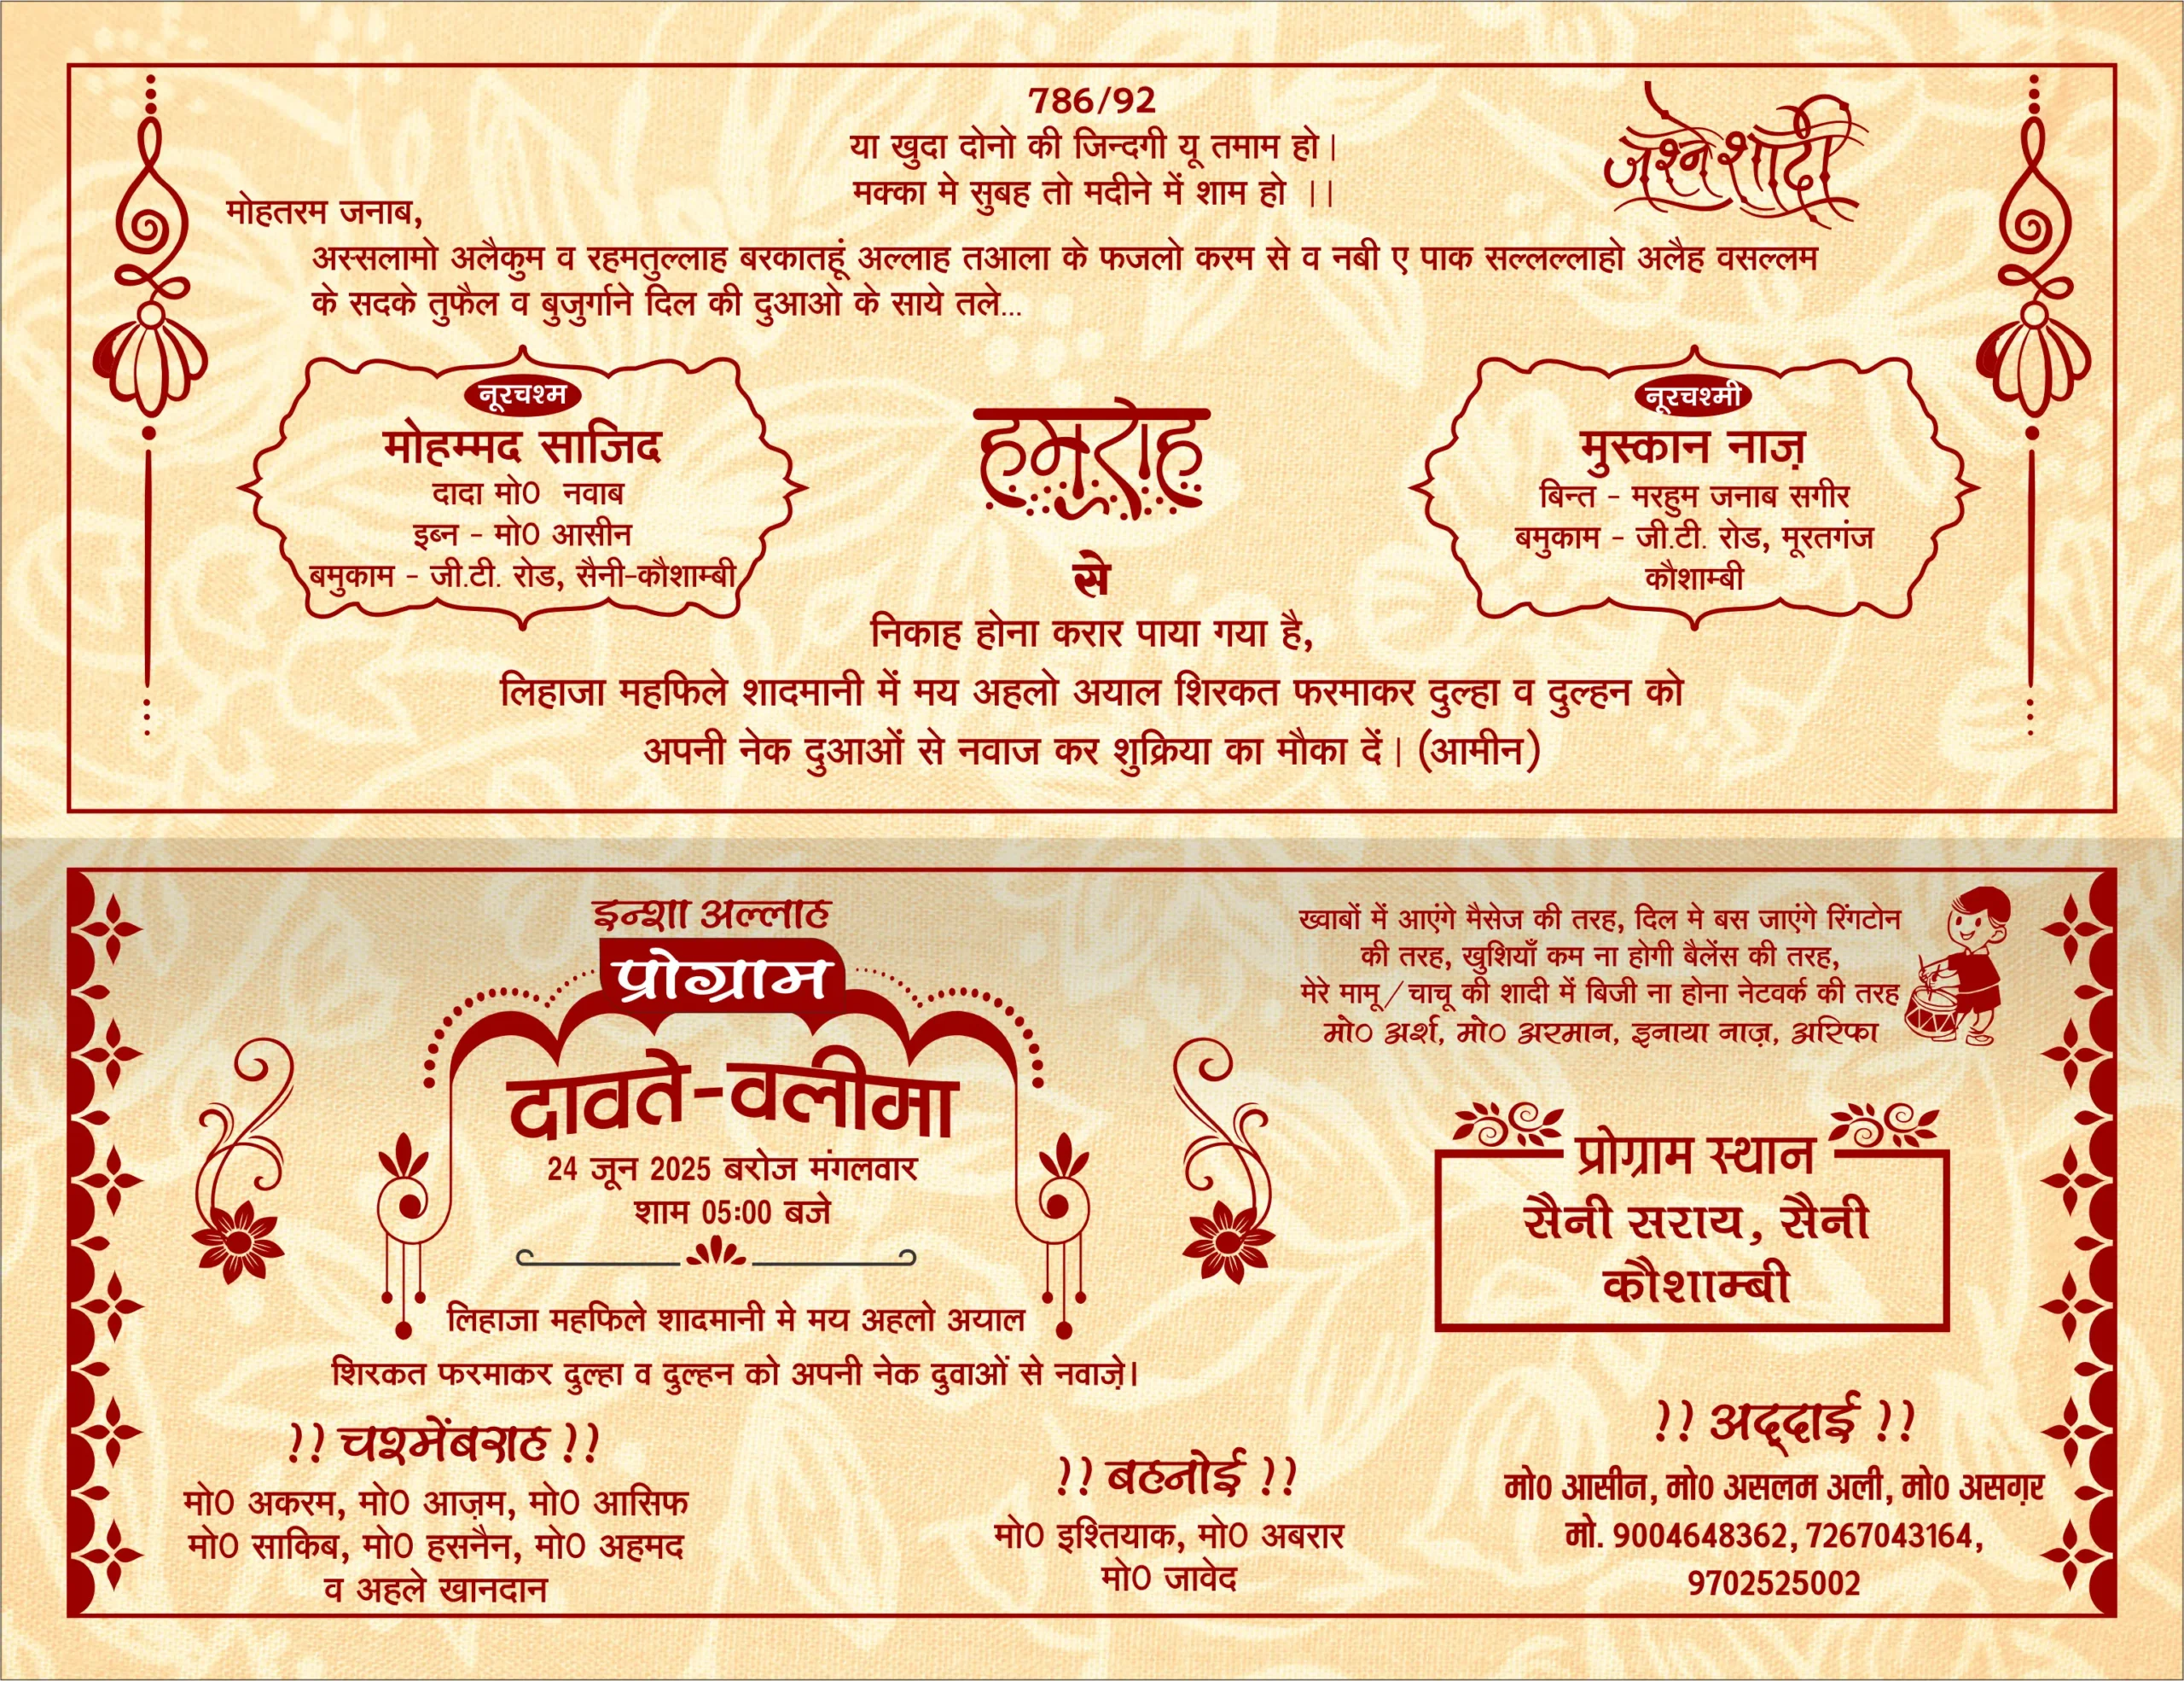 786/92
या खुदा दोनो की जिन्दगी यू तमाम हो।
मक्का मे सुबह तो मदीने में शाम हो ।।
जश्ने शादी
मोहतरम जनाब,
अस्सलामो अलैकुम व रहमतुल्लाह बरकातहूं अल्लाह तआला के फजलो करम से व नबी ए पाक सल्लल्लाहो अलैह वसल्लम
के सदके तुफैल व बुजुर्गाने दिल की दुआओ के साये तले...
नूरचश्म
मोहम्मद साजिद
दादा मो0 नवाब
इब्न - मो0 आसीन
बमुकाम - जी.टी. रोड, सैनी-कौशाम्बी
हमराह
से
नूरचश्मी
मुस्कान नाज़
बिन्त - मरहुम जनाब सगीर
बमुकाम - जी.टी. रोड, मूरतगंज
कौशाम्बी
निकाह होना करार पाया गया है,
लिहाजा महफिले शादमानी में मय अहलो अयाल शिरकत फरमाकर दुल्हा व दुल्हन को
अपनी नेक दुआओं से नवाज कर शुक्रिया का मौका दें। (आमीन)
इन्शा अल्लाह
प्रोग्राम
दावते-वलीमा
24 जून 2025 बरोज मंगलवार
शाम 05:00 बजे
लिहाजा महफिले शादमानी मे मय अहलो अयाल
शिरकत फरमाकर दुल्हा व दुल्हन को अपनी नेक दुवाओं से नवाज़े।
ख्वाबों में आएंगे मैसेज की तरह, दिल मे बस जाएंगे रिंगटोन
की तरह, खुशियाँ कम ना होगी बैलेंस की तरह,
मेरे मामू/चाचू की शादी में बिजी ना होना नेटवर्क की तरह
मो0 अर्श, मो0 अरमान, इनाया नाज़, अरिफा
प्रोग्राम स्थान
सैनी सराय, सैनी
कौशाम्बी
!! चश्मेंबराह !!
मो0 अकरम, मो0 आज़म, मो0 आसिफ
मो0 साकिब, मो0 हसनैन, मो0 अहमद
व अहले खानदान
!! बहनोई !!
मो0 इश्तियाक, मो0 अबरार
मो0 जावेद
!! अद्दाई !!
मो0 आसीन, मो0 असलम अली, मो0 असग़र
मो. 9004648362, 7267043164,
9702525002